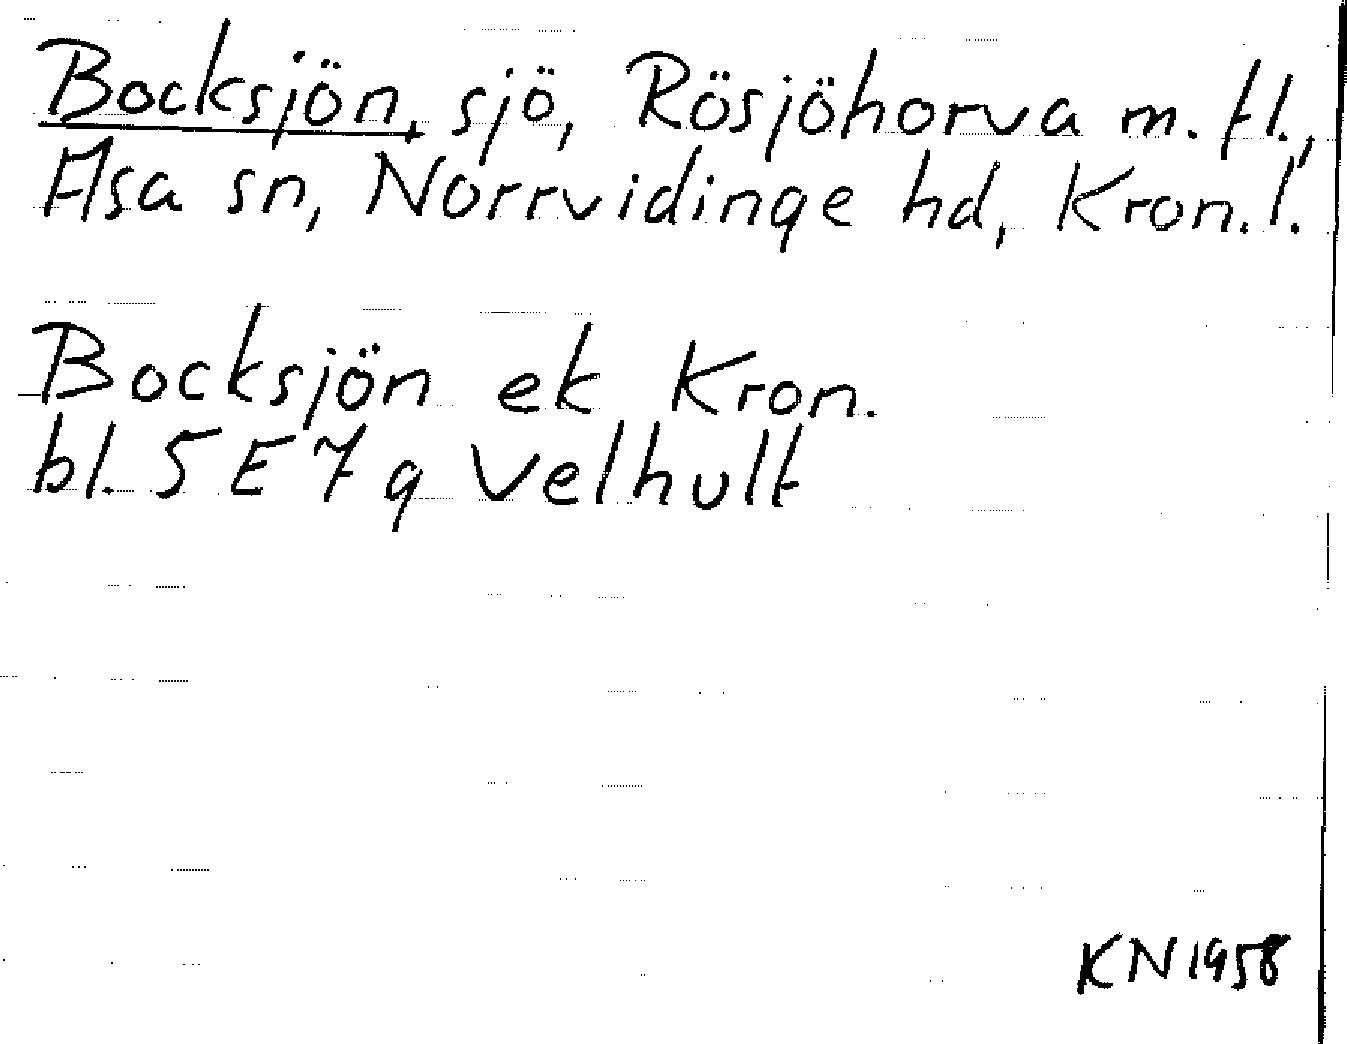 Bocksjön, sjö, Rösjöhorva m. fl.,
Asa sn, Norrvidinge hd, Kron. l.
Bocksjön ek Kron.
bl. 5 E 7 g Velhult
KN 1958